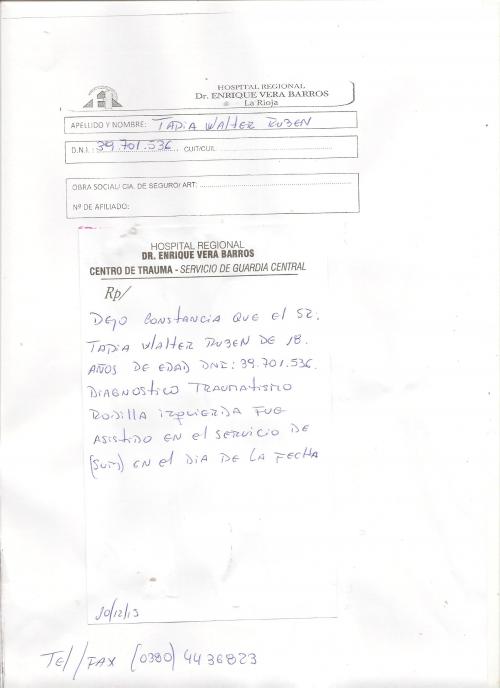 HOSPITAL REGIONAL
Dr. ENRIQUE VERA BARROS
La Rioja
APELLIDO Y NOMBRE: TAPIA WALTER RUBEN
D.N.I.: 39.701.536 CUIT/CUIL
OBRA SOCIAL/ CIA. DE SEGURO/ ART:
Nº DE AFILIADO:
HOSPITAL REGIONAL
DR. ENRIQUE VERA BARROS
CENTRO DE TRAUMA - SERVICIO DE GUARDIA CENTRAL
Rp/
DEJO CONSTANCIA QUE EL SR.
TAPIA WALTER RUBEN DE 18
AÑOS DE EDAD DNI: 39.701.536.
DIAGNOSTICO TRAUMATISMO
RODILLA IZQUIERDA FUE
ASISTIDO EN EL SERVICIO DE
EN EL DIA DE LA FECHA
TEL/FAX (0380) 4436823